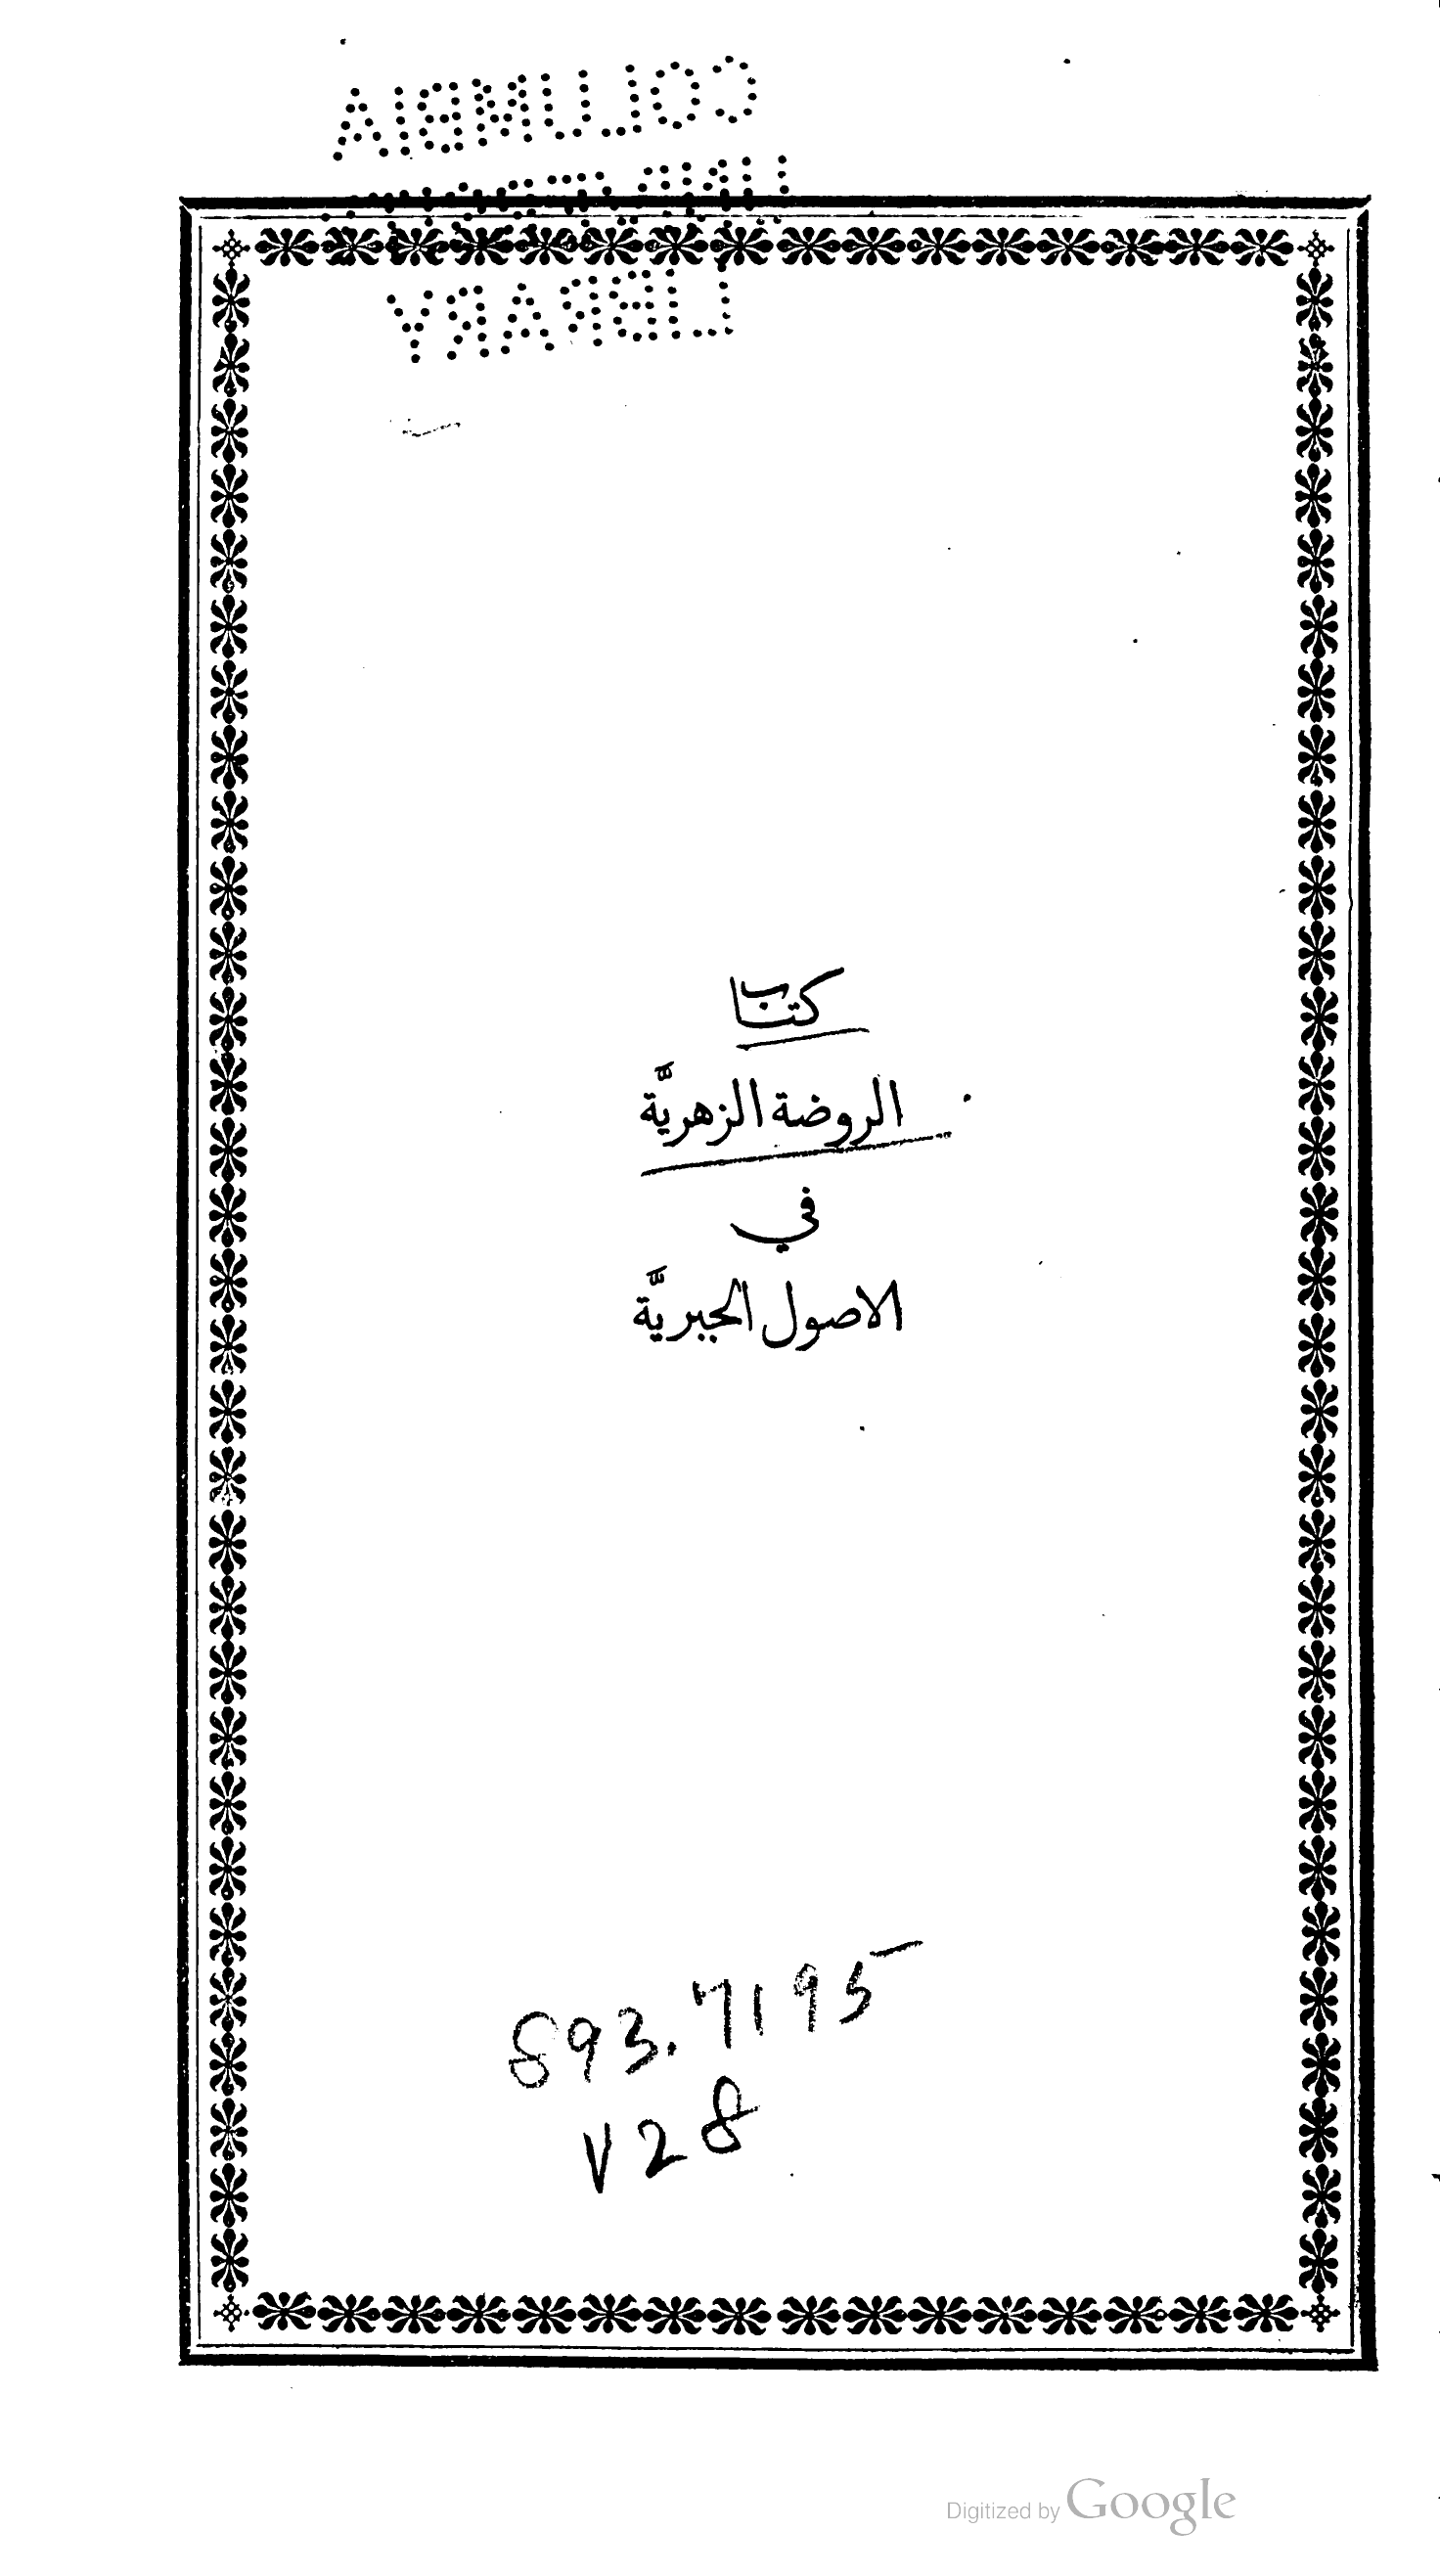 COLUMBIA
LIBRARY
كتاب
الروضة الزهريَّة
في
الاصول الجبريَّة
893.7195
V28
Digitized by Google